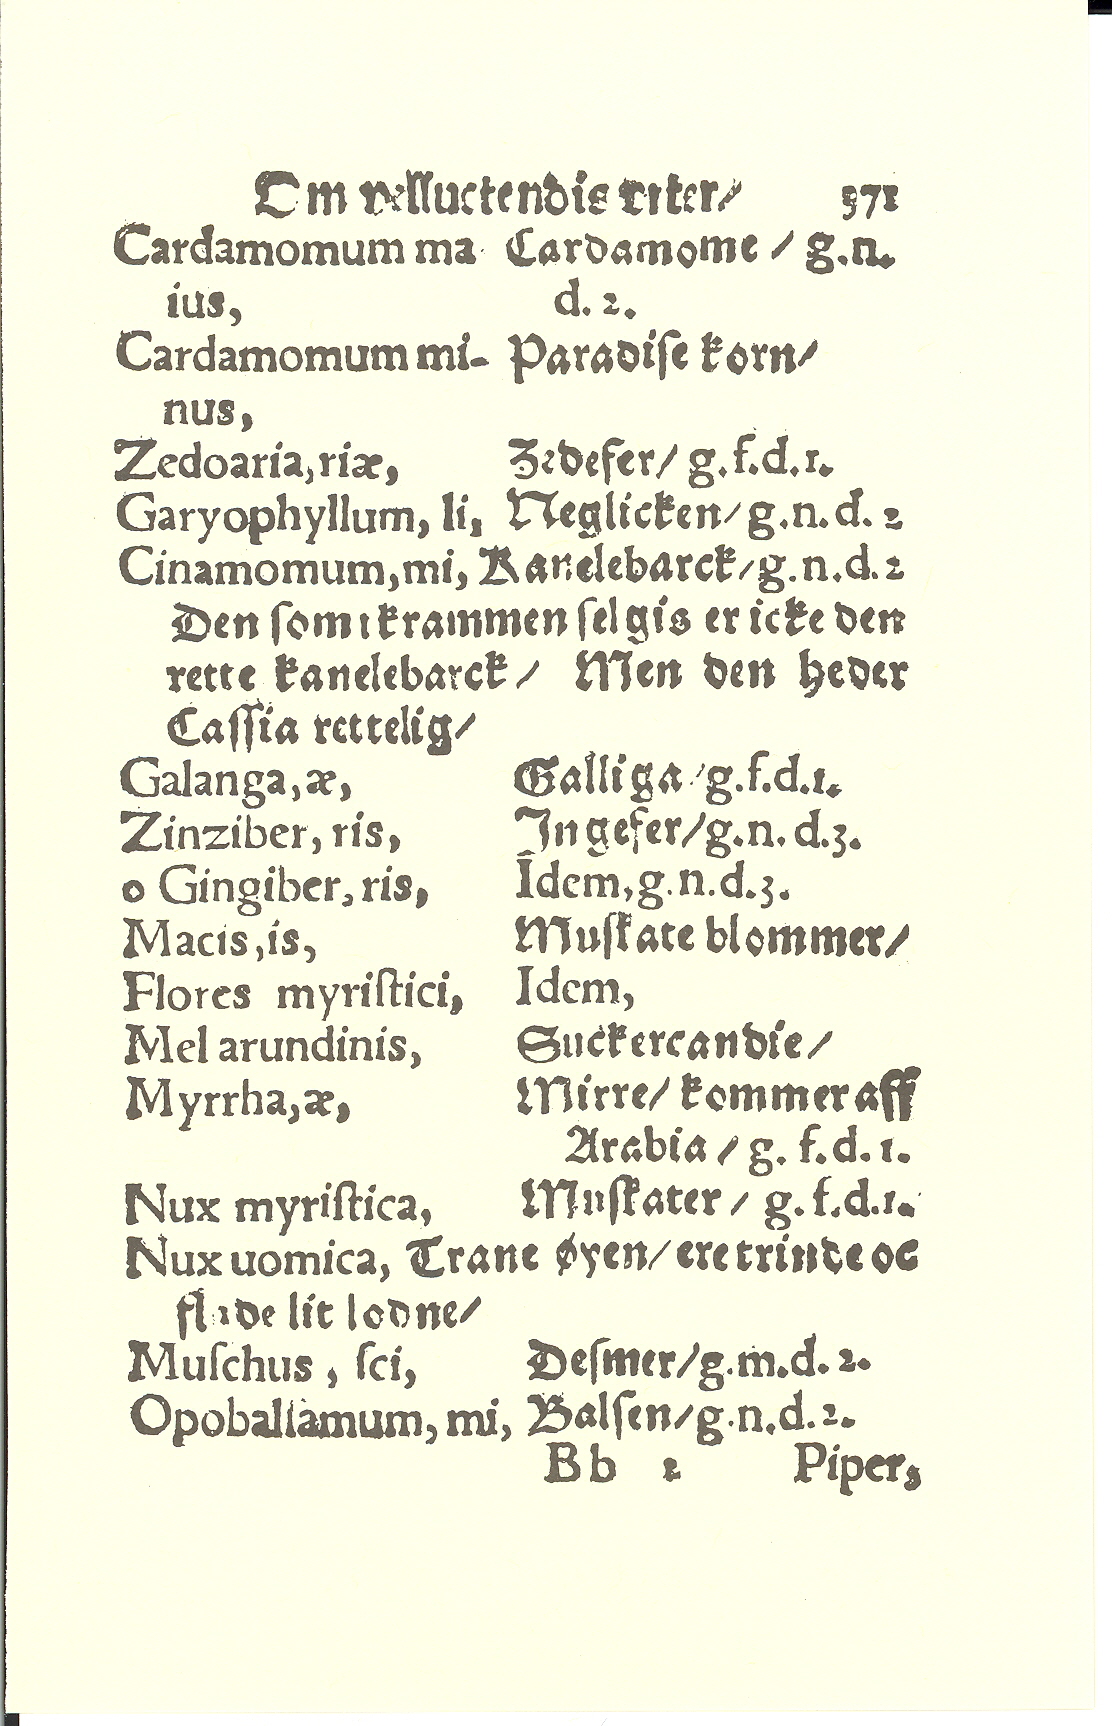 Om velluctendis vrter/ 371
Cardamomum ma Cardamome / g.n.
ius, d. 2.
Cardamomum mi- Paradiſe korn/
nus,
Zedoaria,riæ, Zedefer/ g.f.d.1.
Garyophyllum, li, Neglicken/ g.n.d. 2
Cinamomum,mi, Kanelebarck/g.n.d.2
Den ſom i krammen ſelgis er icke den
rette kanelebarck/ Men den heder
Caſſia rettelig/
Galanga,æ, Galliga/g.f.d.1.
Zinziber, ris, Ingefer/g.n.d.3.
o Gingiber,ris, Idem,g.n.d.3.
Macis,is, Muſkate blommer/
Flores myriſtici, Idem,
Mel arundinis, Suckercandie/
Myrrha,æ, Mirre/ kommer aff
Arabia / g. f.d.1.
Nux myriſtica, Muſkater / g.f.d.1.
Nux uomica, Trane øyen/ ere trinde oc
flade lit lodne/
Muſchus, ſci, Deſmer/g.m.d.2.
Opobalſamum, mi, Balſen/g.n.d.2.
Bb 2 Piper,